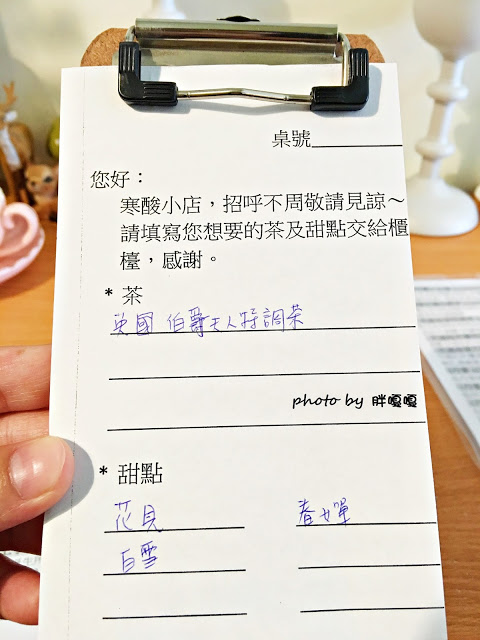 桌號
您好：
寒酸小店，招呼不周敬請見諒～
請填寫您想要的茶及甜點交給櫃
檯，感謝。
* 茶
英國 伯爵夫人特調茶
photo by 胖嘎嘎
* 甜點
花貝 春嬋
白雪